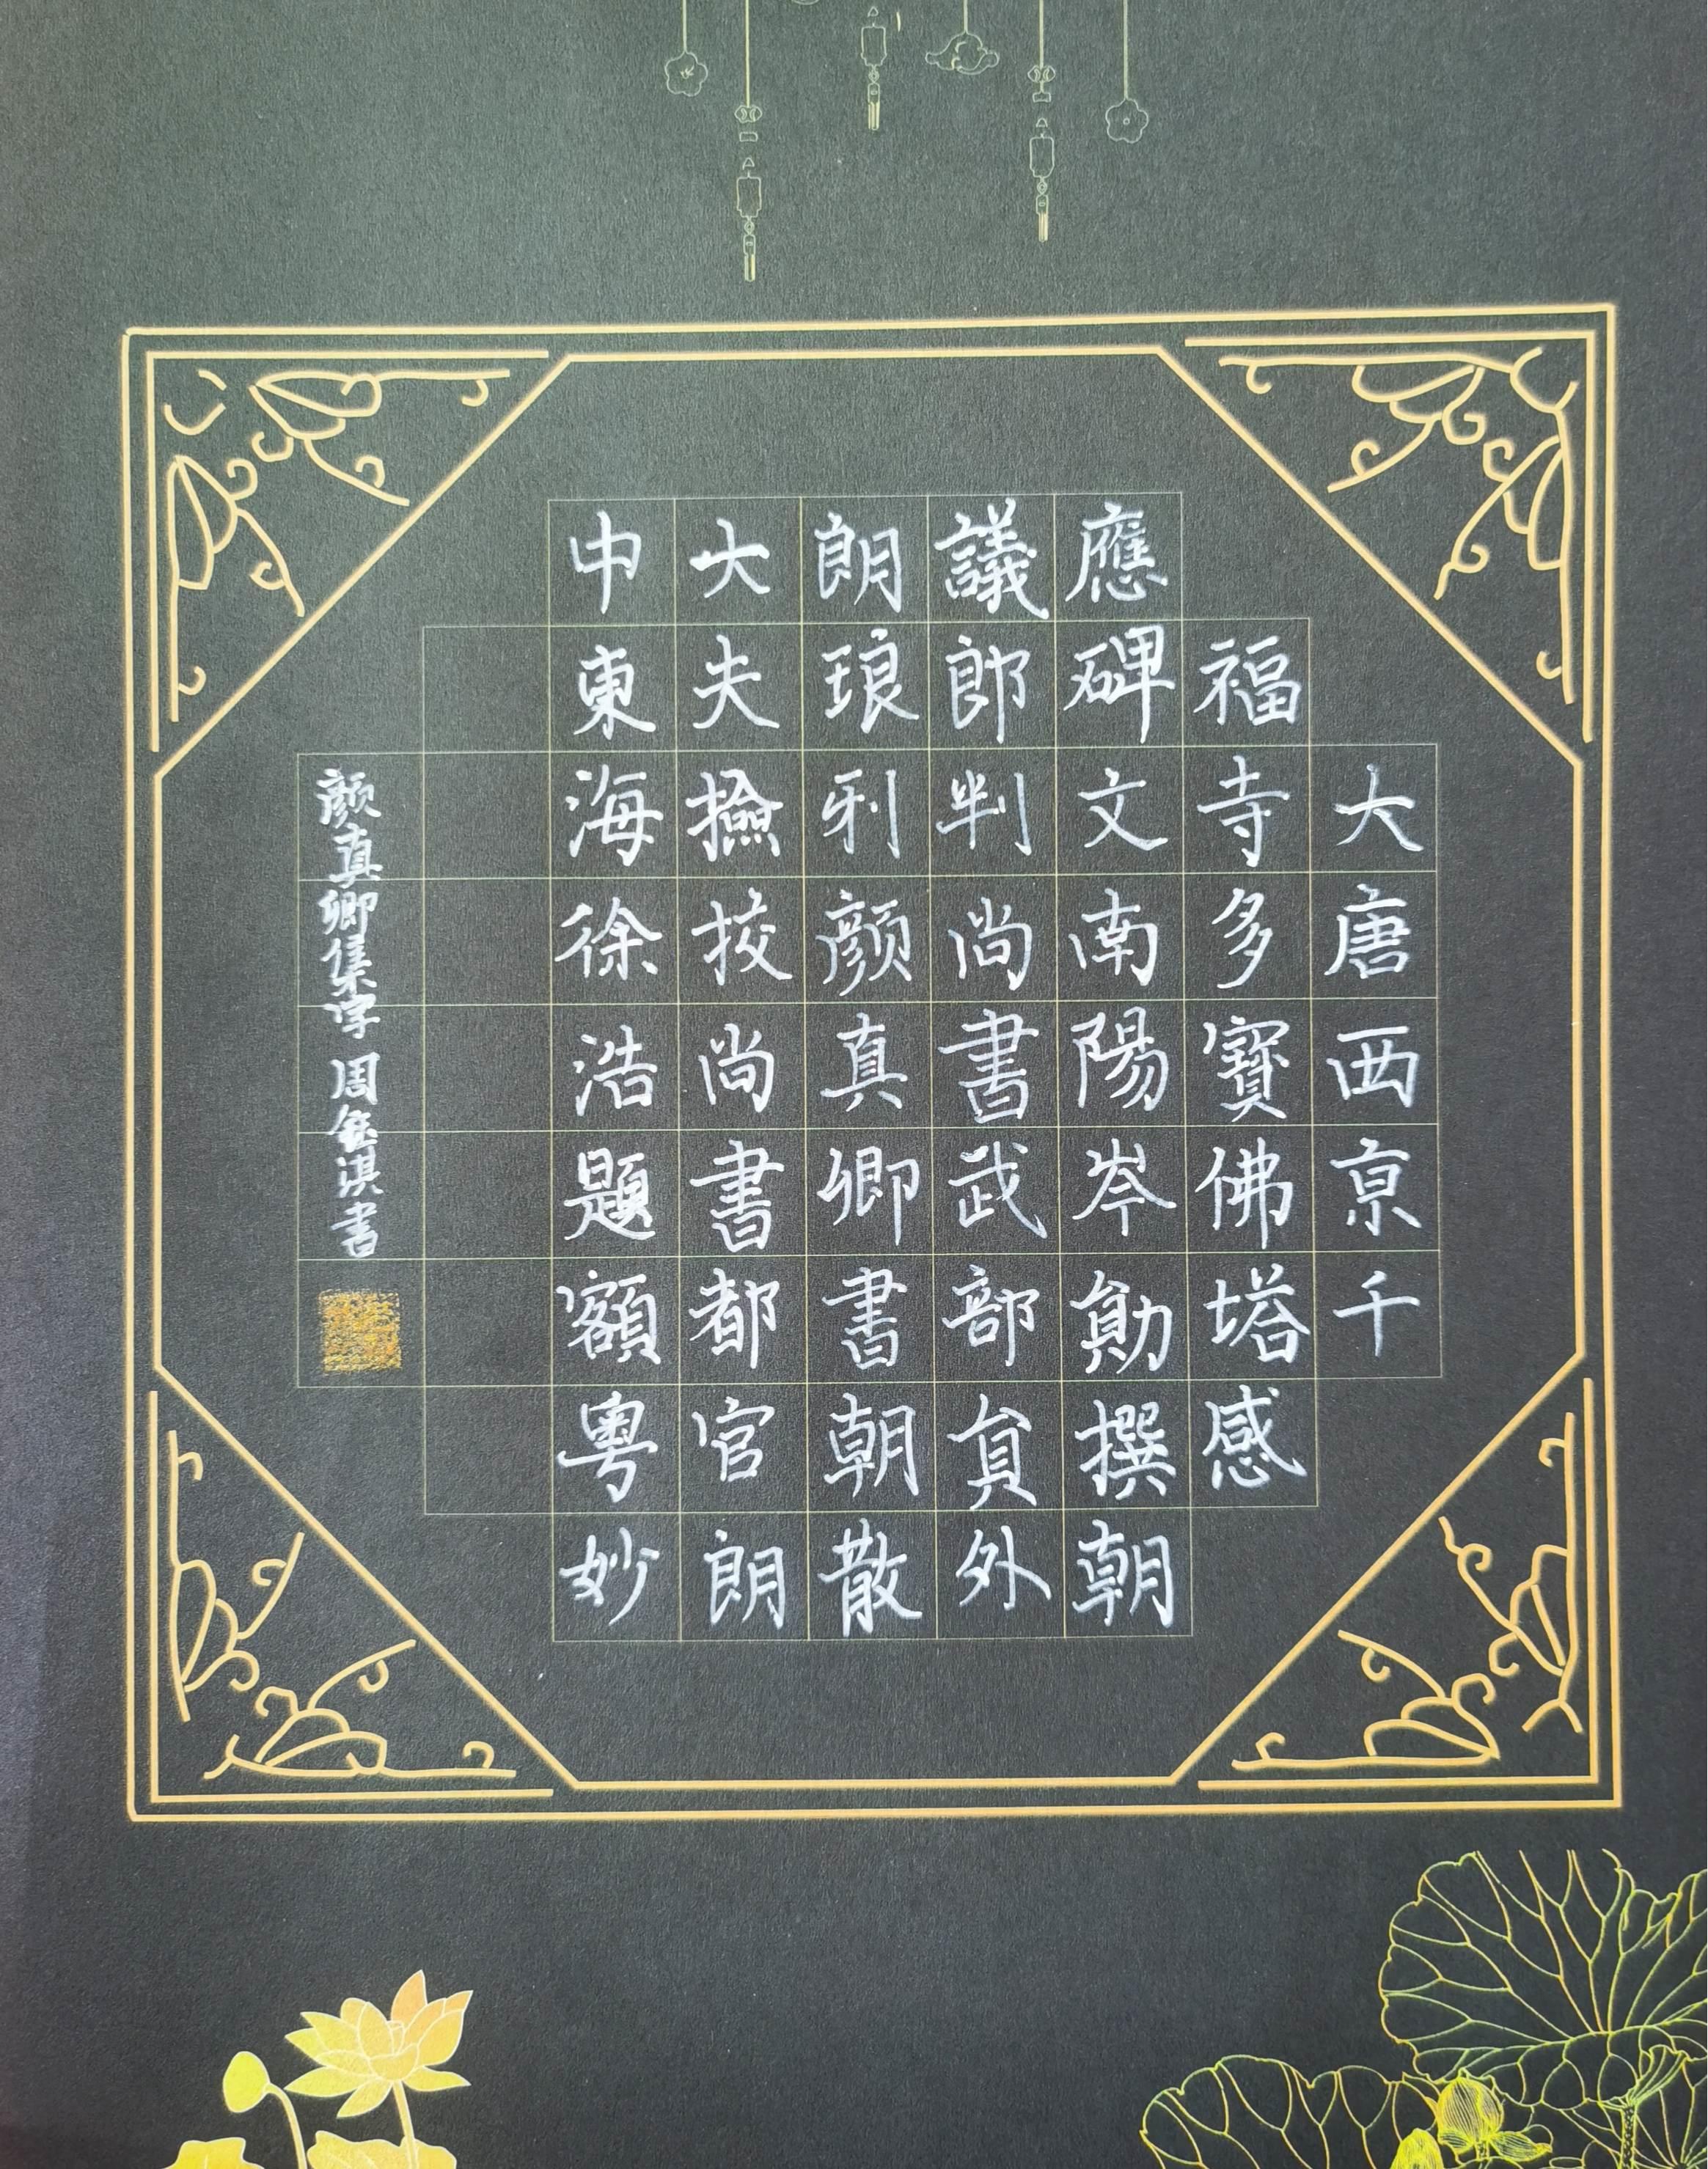 大唐西京千
福寺多寶佛塔感
應碑文南陽岑勛撰朝
議郎判尚書武部員外
朗琅玡顏真卿書朝散
大夫撿挍尚書都官朗
中東海徐浩題額粵妙
顏真卿集字 周淇書